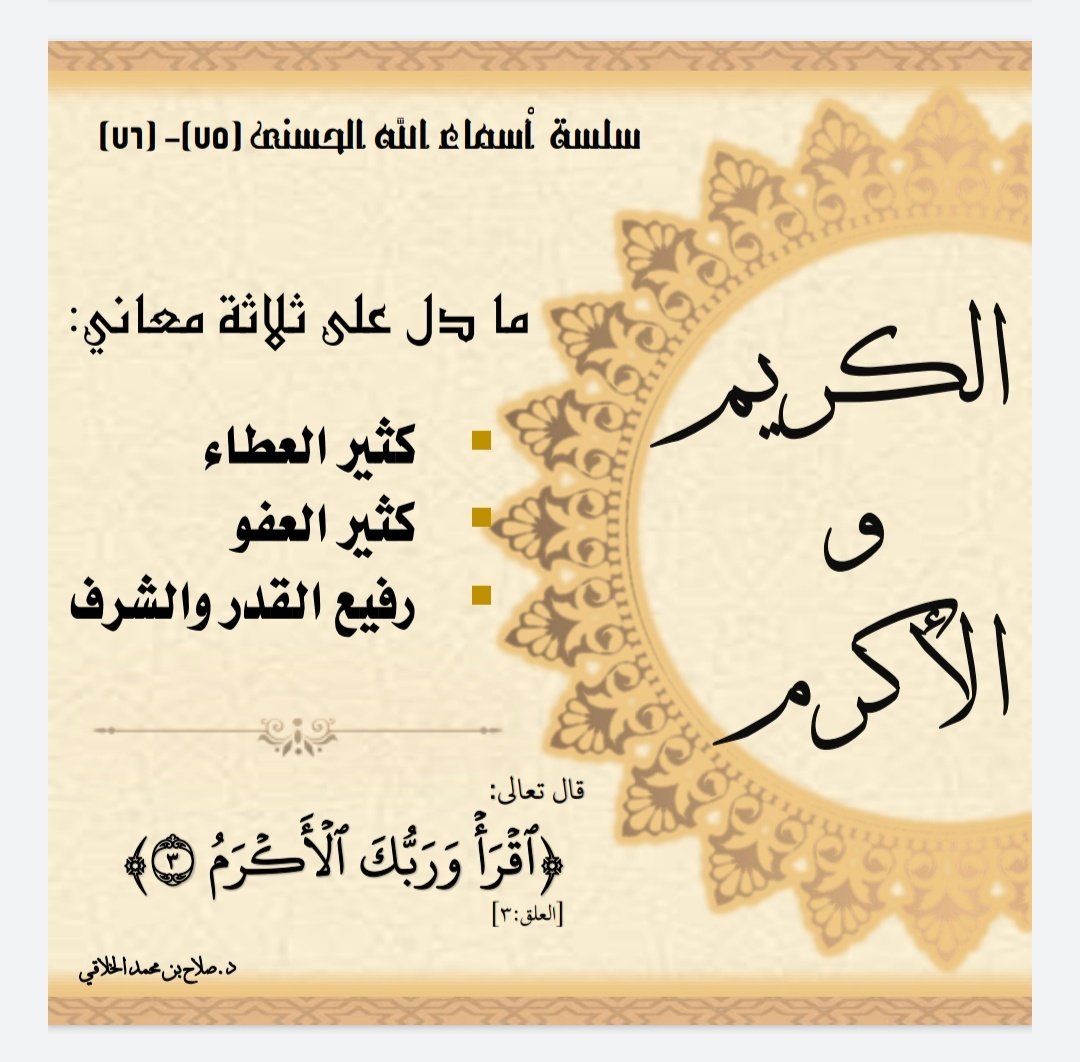 سلسة أسماء الله الحسنى (٧٥)- (٧٦)
الكريم
و
الأكرم
ما دل على ثلاثة معاني:
كثير العطاء
كثير العفو
رفيع القدر والشرف
قال تعالى:
﴿ٱقۡرَأۡ وَرَبُّكَ ٱلۡأَكۡرَمُ ٣﴾
[العلق:٣]
د.صلاح بن محمد الخلاقي